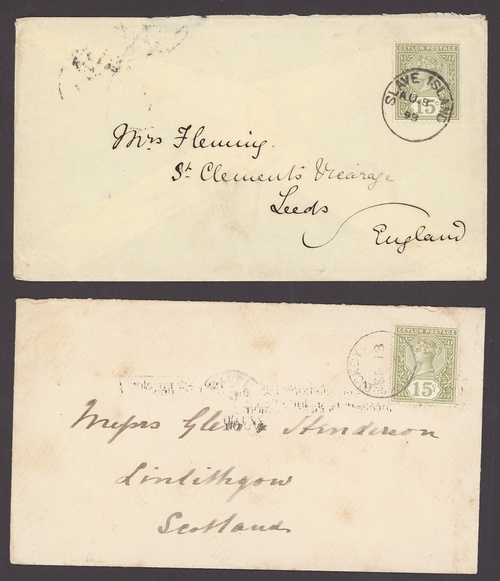 CEYLON POSTAGE
15c
SLAVE ISLAND
AU 8
99
Mrs Fleming.
St. Clements Vicarage
Leeds
England
CEYLON POSTAGE
15c
13
Messrs Glen & Henderson
Linlithgow
Scotland